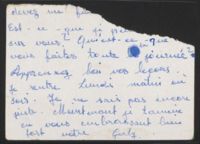 devez me fa
Est-ce que je p
sur vous? Qu'est-ce que
vous faites toute journée?
Apprenez bien vos leçons.
Je rentre Lundi matin ou
soir. Je ne sais pas encore
Maintenant je termine
en vous embrassant bien
fort votre